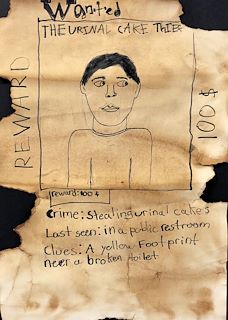 Wanted
THE URINAL CAKE THIEF
REWARD
100$
reward: 100$
Crime: Stealing urinal cakes
Last seen: in a public restroom
Clues: A yellow Foot print
near a broken toilet